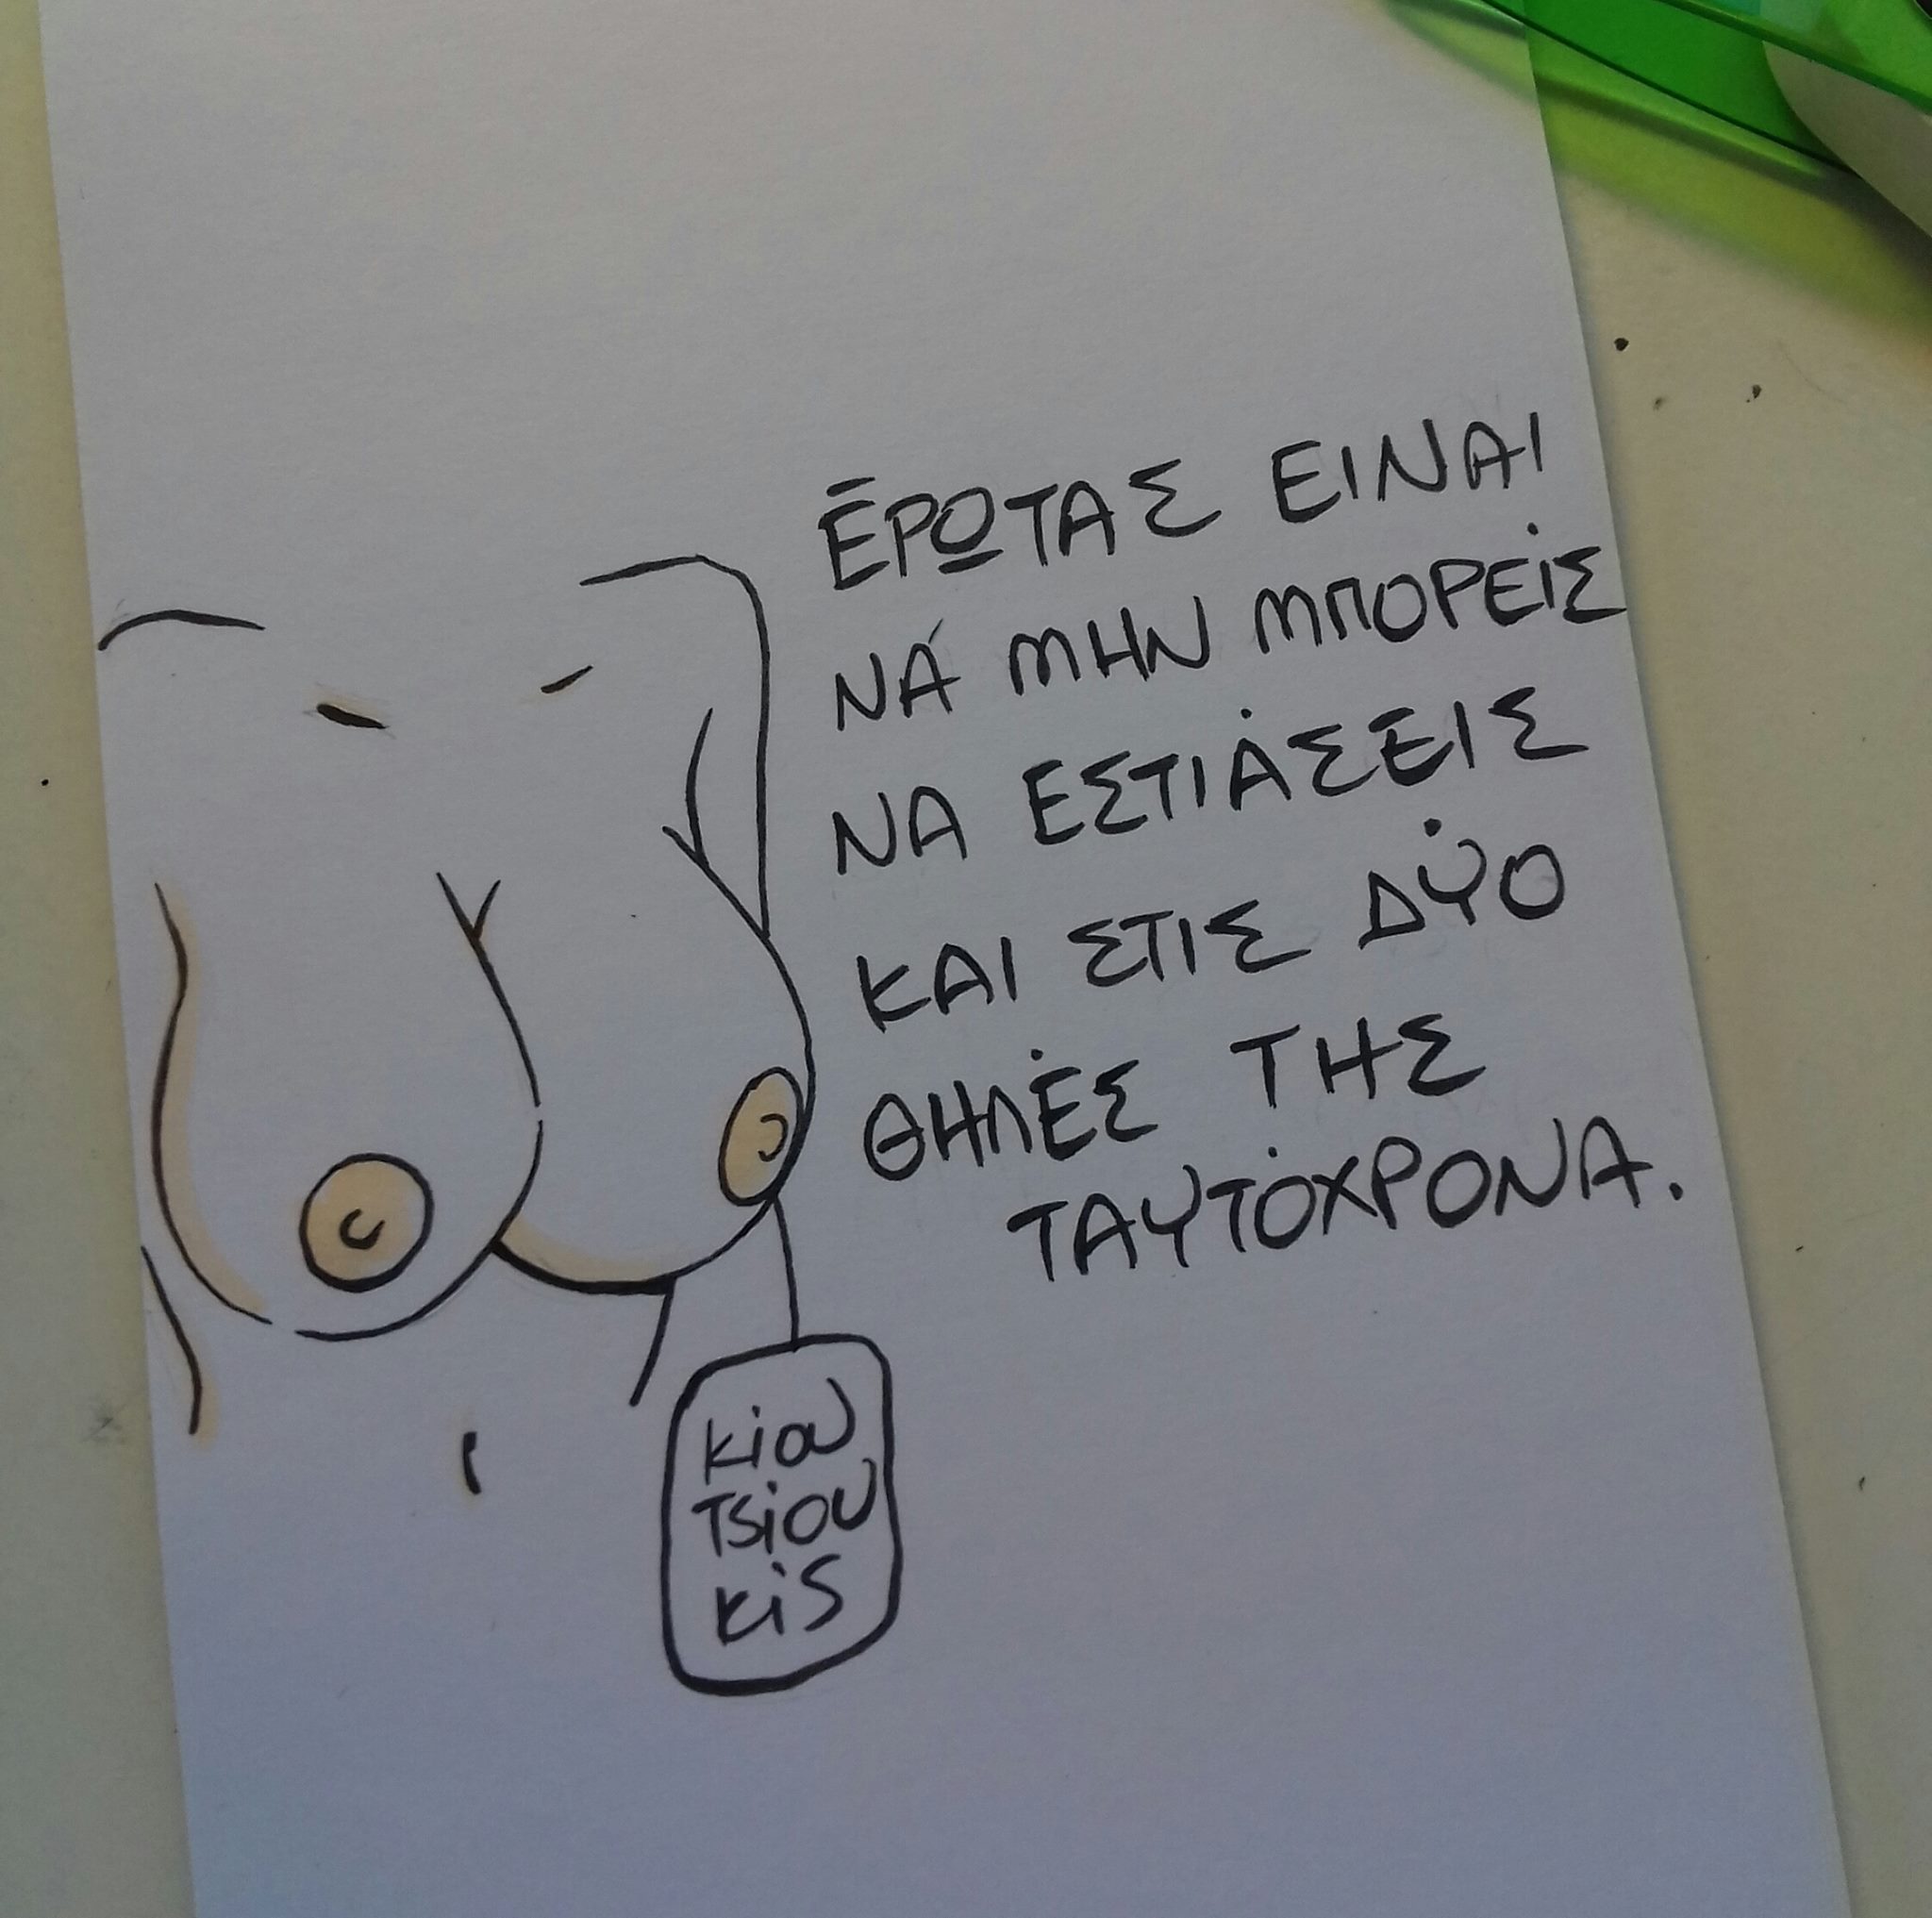 ΈΡΩΤΑΣ ΕΙΝΑΙ
ΝΆ ΜΗΝ ΜΠΟΡΕΊΣ
ΝΑ ΕΣΤΙΆΣΕΙΣ
ΚΑΙ ΣΤΙΣ ΔΎΟ
ΘΗΛΈΣ ΤΗΣ
ΤΑΥΤΌΧΡΟΝΑ.
kiou
Tsiou
kis